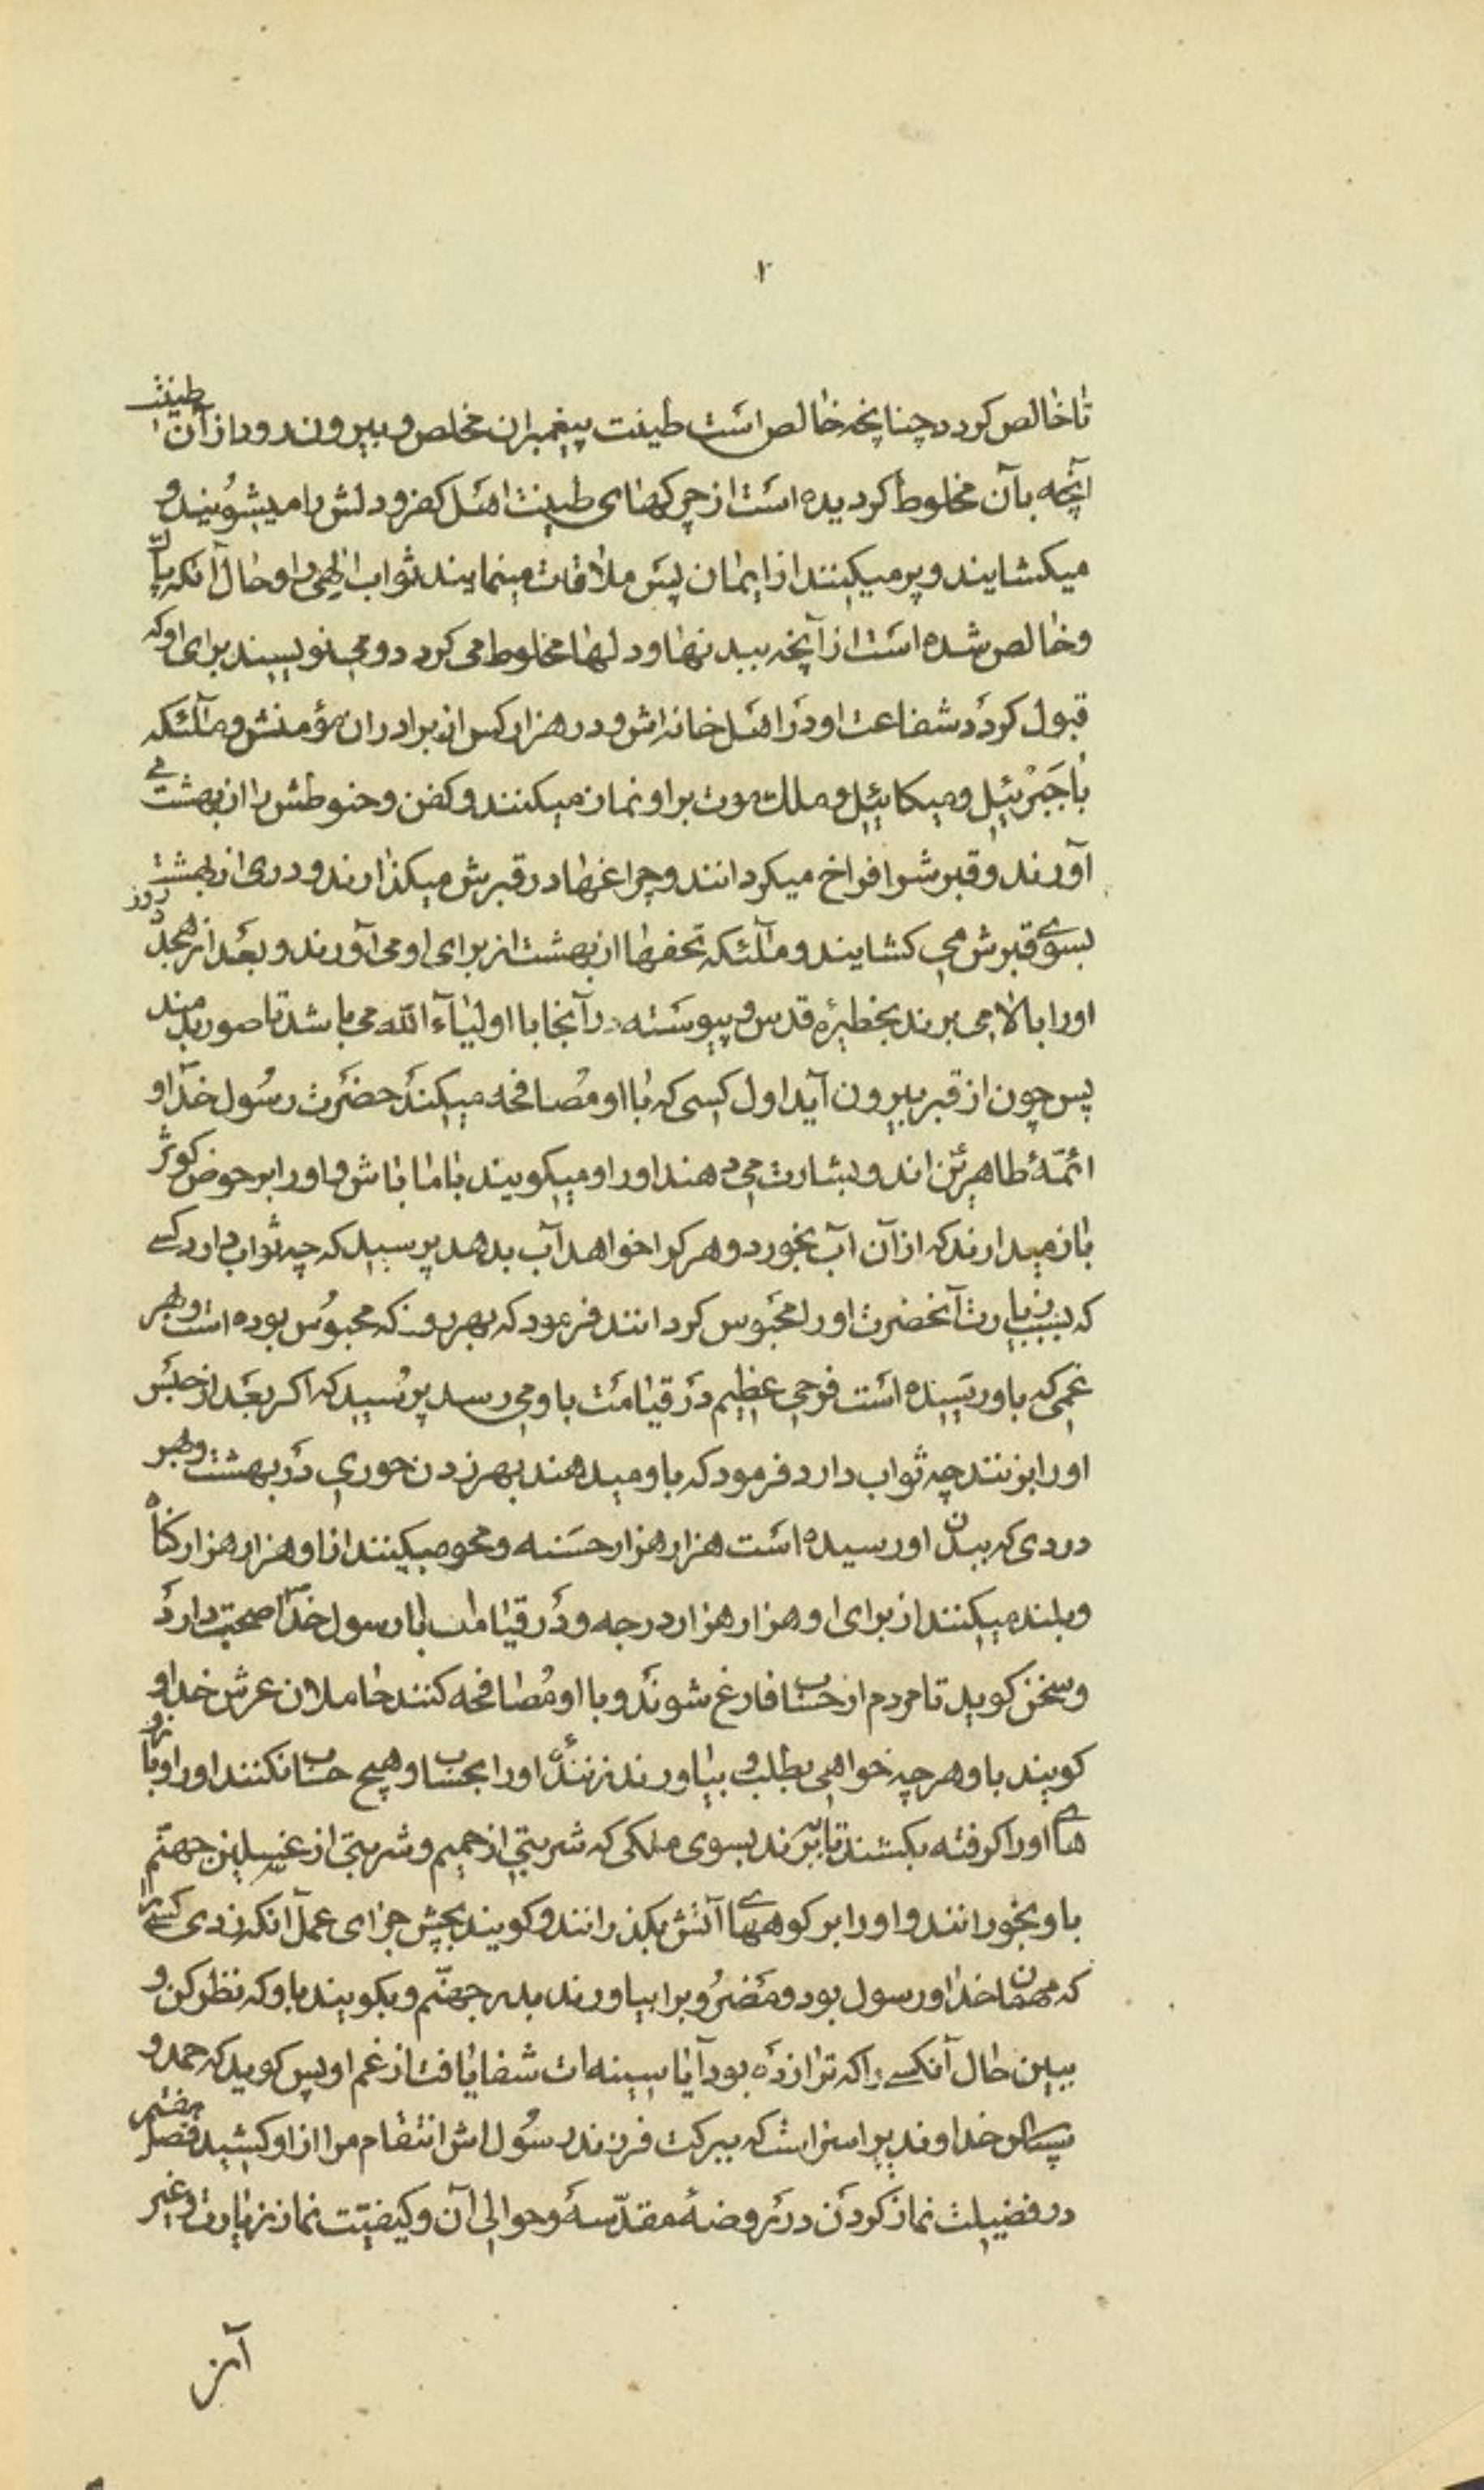 ۲
تا خالص کردد چنانچه خالص است طینت پیغمبران مخلص و بیرون رود از آن طینت
آنچه بآن مخلوط کردیده است از چرکهای طینت اهل کفر و دلش را میشویند و
میکشایند و پر میکنند از ایمان پس ملاقات مینمایند ثواب الهی را و حال آنکه پاک
و خالص شده است از آنچه ببدنها و دلها مخلوط می کردد و می نویسند برای او که
قبول کردد شفاعت او در اهل خانه اش و در هزار کس از برادران مؤمنش و ملآئکه
با جبرئیل و میکائیل و ملك موت بر او نماز میکنند و کفن و حنوطش را از بهشت می
آورند و قبرش را فراخ میکردانند و چراغها در قبرش میکذارند و دری از بهشت
بسوی قبرش می کشایند و ملآئکه تحفها از بهشت از برای او می آورند و بعد از هجده روز
او را بالا می برند بخطیرۀ قدس و پیوسته در آنجا با اولیآء الله می باشد تا صور بدمند
پس چون از قبر بیرون آید اول کسی که با او مصافحه میکند حضرت رسول خدا و
ائمّۀ طاهرین اند و بشارت می دهند او را و میکویند با ما باش و او را بر حوض کوثر
باز میدارند که از آن آب بخورد و هر کرا خواهد آب بدهد پرسید که چه ثواب دارد کسے
که بسبب زیارت آنحضرت او را محبوس کردانند فرمود که بهر روز که محبوس بوده است و بهر
غمی که باو رسیده است فرحی عظیم در قیامت باو می رسد پرسید که اکر بعد از حبس
او را بزنند چه ثواب دارد فرمود که باو میدهند بهر زدن حوری در بهشت و بهر
دردی که ببدن او رسیده است هزار هزار حسنه و محو میکنند از او هزار هزار کناه
و بلند میکنند از برای او هزار هزار درجه و در قیامت با رسول خدا صحبت دارد
و سخن کوید تا مردم از حساب فارغ شوند و با او مصافحه کنند حاملان عرش خدا و
کویند باو هر چه خواهی بطلب و بیاورند زنندۀ او را بحساب و هیچ حساب نکنند او را و بازو
هاے او را کرفته بکشند تا ببرند بسوی ملکی که شربتی از حمیم و شربتی از غسلین جهنّم
باو بخورانند و او را بر کوههاے آتش بکذرانند و کویند بچش جزای عمل آنکه زدی کسے را
که مهمان خدا و رسول بود و مضروب را بیاورند بدر جهنّم و بکویند باو که نظر کن و
ببین حال آنکسے را که ترا زده بود آیا سینه ات شفا یافت از غم او پس کوید که حمد و
سپاس خداوندیرا سزا است که ببرکت فرزند رسول اش انتقام مرا از او کشید فصل هفتم
در فضیلت نماز کردن در روضۀ مقدّسه و حوالی آن و کیفیّت نماز زیارت و غیر
آن